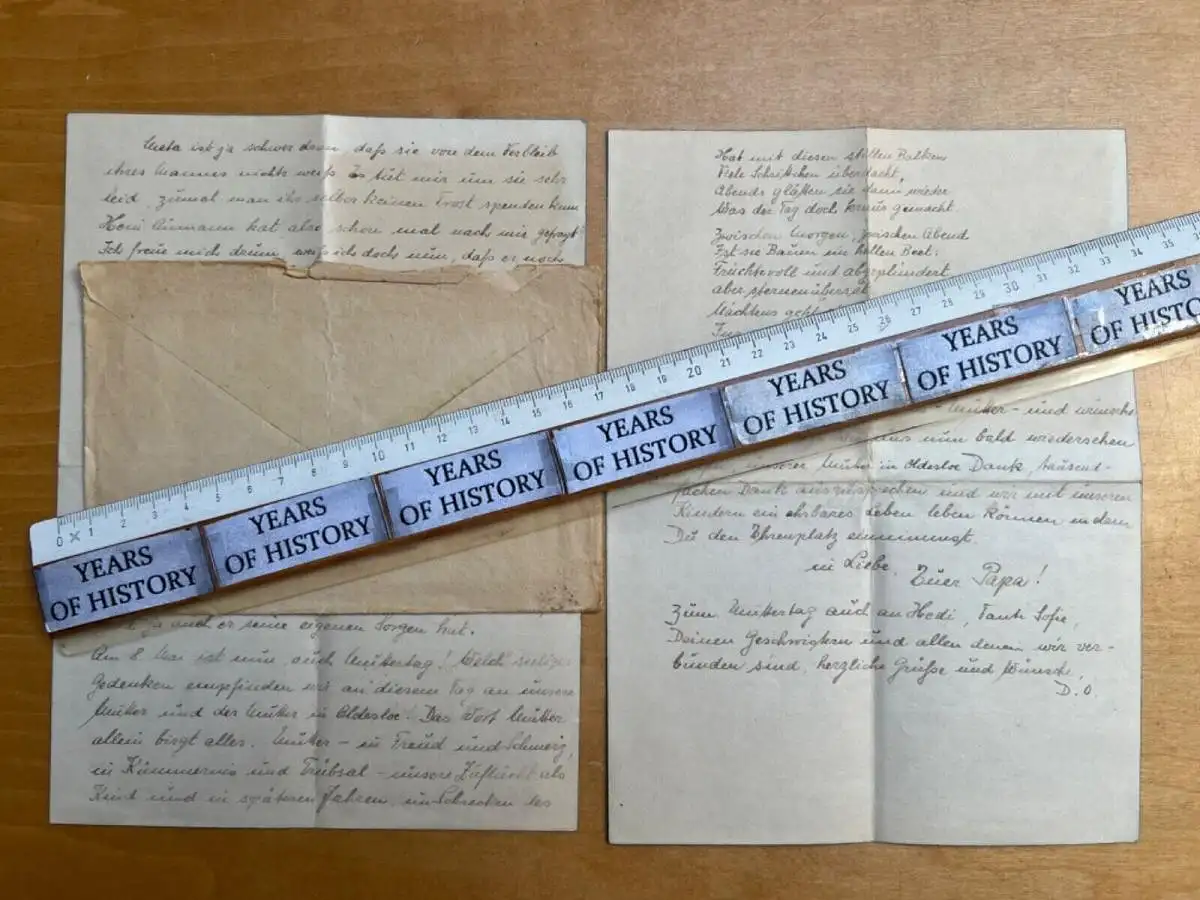 Meta ist ja schwer daran, daß sie von dem Verbleib
ihres Mannes nichts weiß. Es tut mir um sie sehr
leid, zumal man ihr selber keinen Trost spenden kann
Heini hat also schon mal nach mir gefragt
Ich freue mich denn weiß ich doch nun, daß er noch
ja auch er seine eigenen Sorgen hat.
Am 8 Mai ist nun auch Muttertag! Welch
Gedenken empfinden wir an diesem Tag an unsere
Mutter und der Mutter in Oldesloe. Das Wort Mutter
allein birgt alles. Mutter – in Freud und Schmerz,
in Kümmernis und Trübsal – unsere Zuflucht als
Kind und in späteren Jahren, im Schrecken des
Hat mit diesen stillen Balken
Viele Schrittchen überdacht,
Abends glätten sie dann wieder
Was der Tag doch kraus gemacht.
Zwischen Morgen, zwischen Abend
Ist sie Baum im hellen Beet:
Früchtevoll und abgeplündert
aber sternenübersät
Nächtens
Mutter – und wünsche
uns nun bald wiedersehen
unserer Mutter in Oldesloe Dank, tausend-
fachen Dank auszusprechen und wir mit unseren
Kindern ein ehrbares Leben leben können in dem
Du den Ehrenplatz einnimmst.
in Liebe, Euer Papa!
Zum Muttertag auch an Hedi, Tante Sofie,
Deinen Geschwistern und allen denen wir ver-
bunden sind, herzliche Grüße und Wünsche,
D. O.
0 1 2 3 4 5 6 7 8 9 10 11 12 13 14 15 16 17 18 19 20 21 22 23 24 25 26 27 28 29 30 31 32 33 34 35
YEARS
OF HISTORY
YEARS
OF HISTORY
YEARS
OF HISTORY
YEARS
OF HISTORY
YEARS
OF HISTORY
YEARS
OF HISTORY
YEARS
OF HISTO